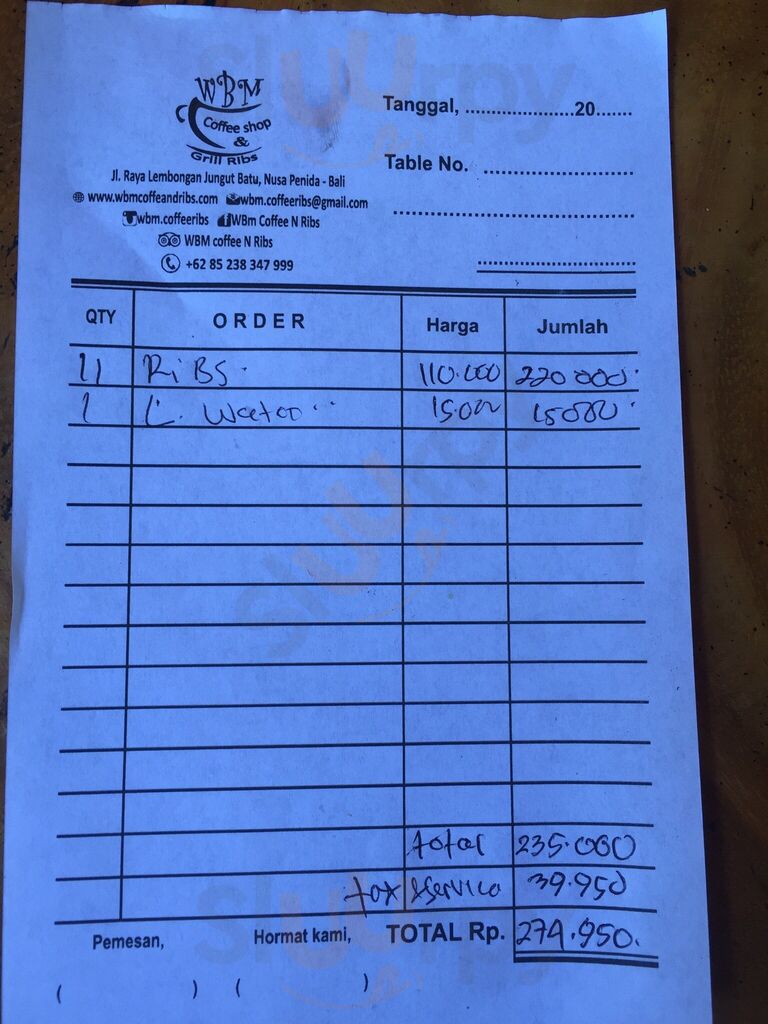 WBM
Coffee shop
&
Grill Ribs
Jl. Raya Lembongan Jungut Batu, Nusa Penida - Bali
www.wbmcoffeandribs.com wbm.coffeeribs@gmail.com
wbm.coffeeribs WBm Coffee N Ribs
WBM coffee N Ribs
+62 85 238 347 999
Tanggal, ......................20.......
Table No. ..............................
QTY ORDER Harga Jumlah
11 RiBS. 110.000 220 000.
1 L. Water 15.000 15000.
total 235.000
tax & service 39.950
TOTAL Rp. 274.950.
Pemesan, Hormat kami,
( ) ( )
sluurpy
sluurpy
sluurpy